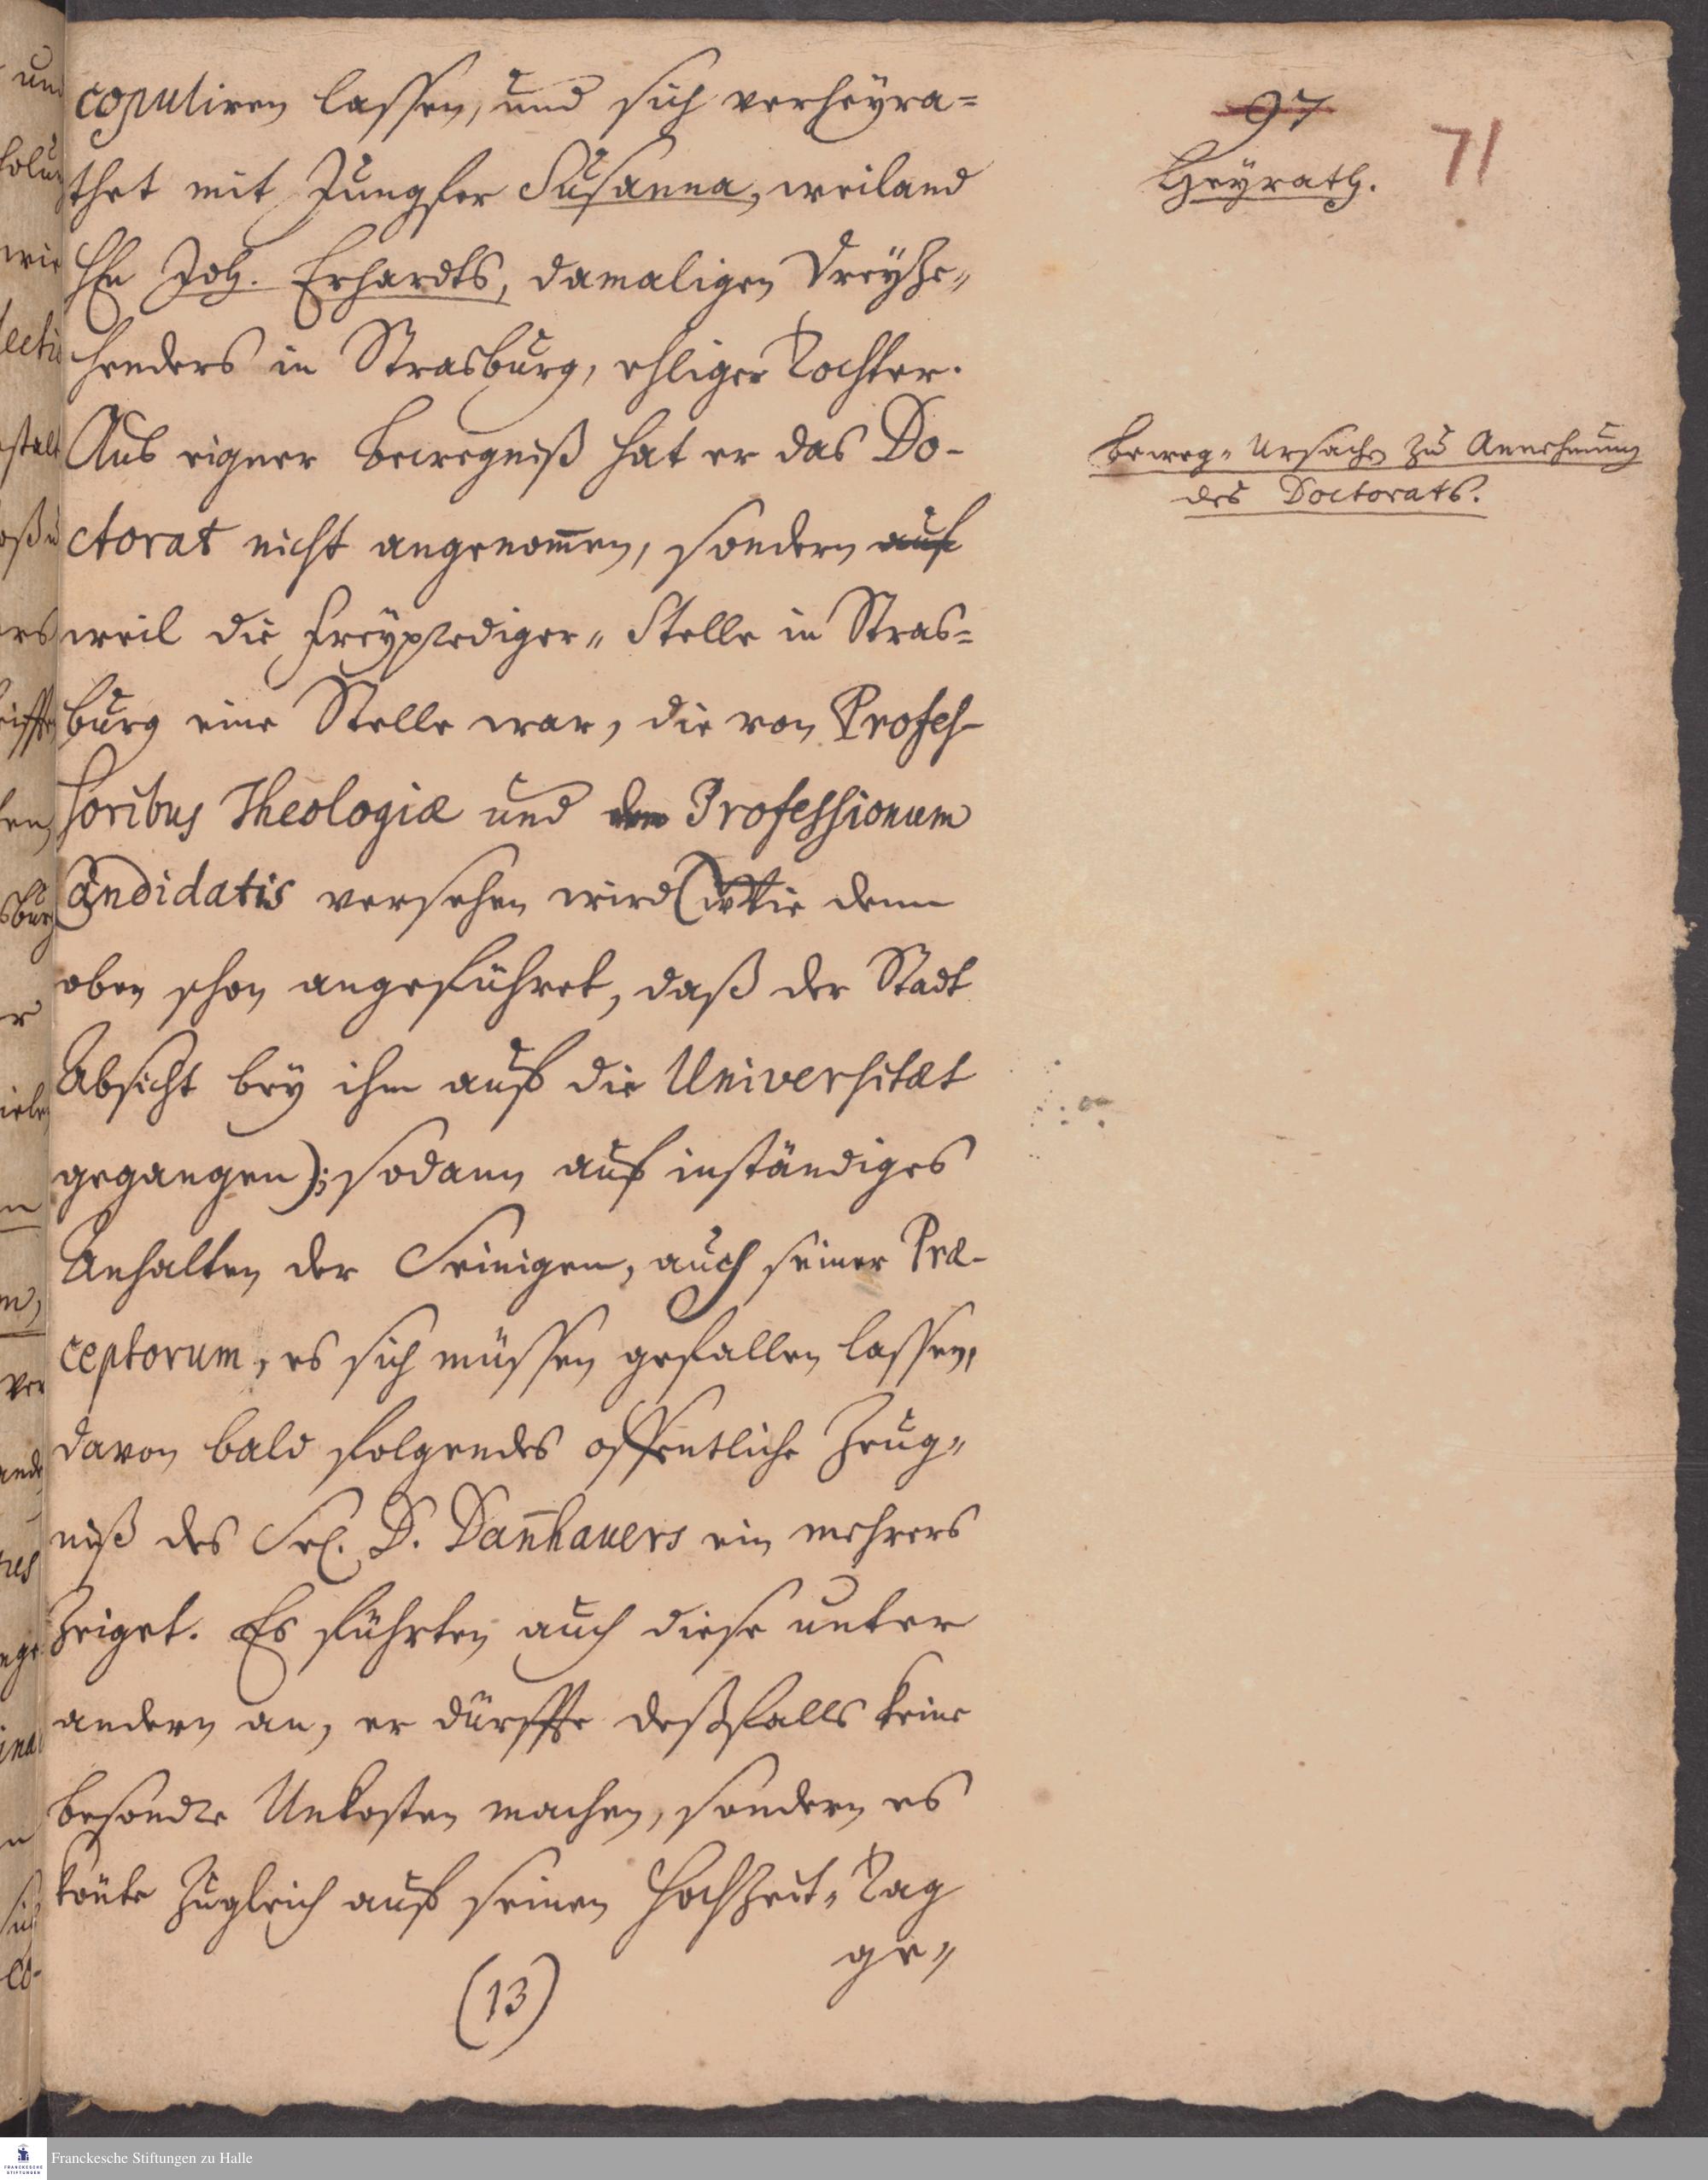 copuliren lassen, und sich verheyra=
thet mit Jungfer Susanna, weiland
Hn Joh. Erhardts, damaligen Dreyze„
henders in Strasburg, ehliger Tochter.
Aus eigner Bewegniß hat er das Do-
ctorat nicht angenom̄en, sondern auf
weil die Freyprediger„ Stelle in Stras=
burg eine Stelle war, die von Profes-
soribus Theologiæ und den Professionum
Candidatis versehen wird (Wie denn
oben schon angeführet, daß der Stadt
Absicht bey ihm auf die Universitæt
gegangen); sodann auf inständiges
Anhalten der Seinigen, auch seiner Præ-
ceptorum, es sich müssen gefallen lassen,
davon bald folgendes offentliche Zeug„
niß des Sel. D. Dañhauers ein mehrers
zeiget. Es führten auch diese unter
andern an, er dürffte deßfalls keine
besondre Unkosten machen, sondern es
köñte zugleich auf seinen Hochzeit„ Tag
ge„
(13)
97
71
Heyrath.
Beweg„ Ursachen zu Annehmung
des Doctorats.
Franckesche Stiftungen zu Halle